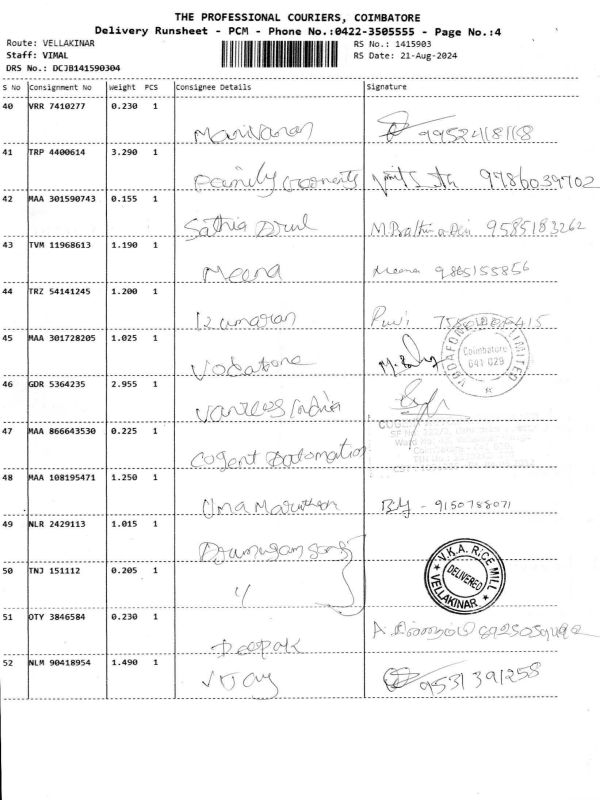 THE PROFESSIONAL COURIERS, COIMBATORE
Delivery Runsheet - PCM - Phone No.:0422-3505555 - Page No.:4
Route: VELLAKINAR RS No.: 1415903
Staff: VIMAL RS Date: 21-Aug-2024
DRS No.: DCJB141590304
S No Consignment No Weight PCS Consignee Details Signature
40 VRR 7410277 0.230 1
Manivanan
41 TRP 4400614 3.290 1
Family 9786039702
42 MAA 301590743 0.155 1
Sathia 9585183262
43 TVM 11968613 1.190 1
Meena Meena 9865155856
44 TRZ 54141245 1.200 1
Kumaran
45 MAA 301728205 1.025 1
Vodafone
VODAFONE LIMITED
Coimbatore
641 029
46 GDR 5364235 2.955 1
India
47 MAA 866643530 0.225 1
Cogent Automation
48 MAA 108195471 1.250 1
Uma 9150788071
49 NLR 2429113 1.015 1
50 TNJ 151112 0.205 1
V.K.A. RICE MILL
DELIVERED
VELLAKINAR
51 OTY 3846584 0.230 1
Deepak
52 NLM 90418954 1.490 1
Vijay 9531391258